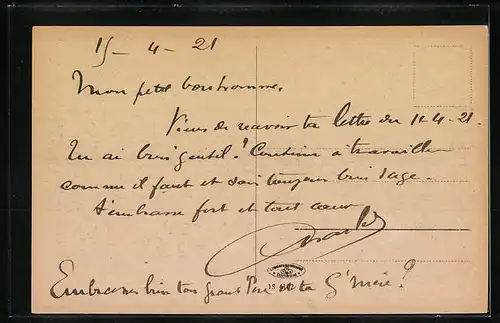 15 - 4 - 21
Mon petit bonhomme,
Viens de recevoir ta lettre du 11-4-21.
Tu ai bien gentil! Continue à travailler
comme il faut et sois toujours bien sage.
T'embrasse fort et tout cœur
Embrasses bien ton grand Père et ta G'mère!